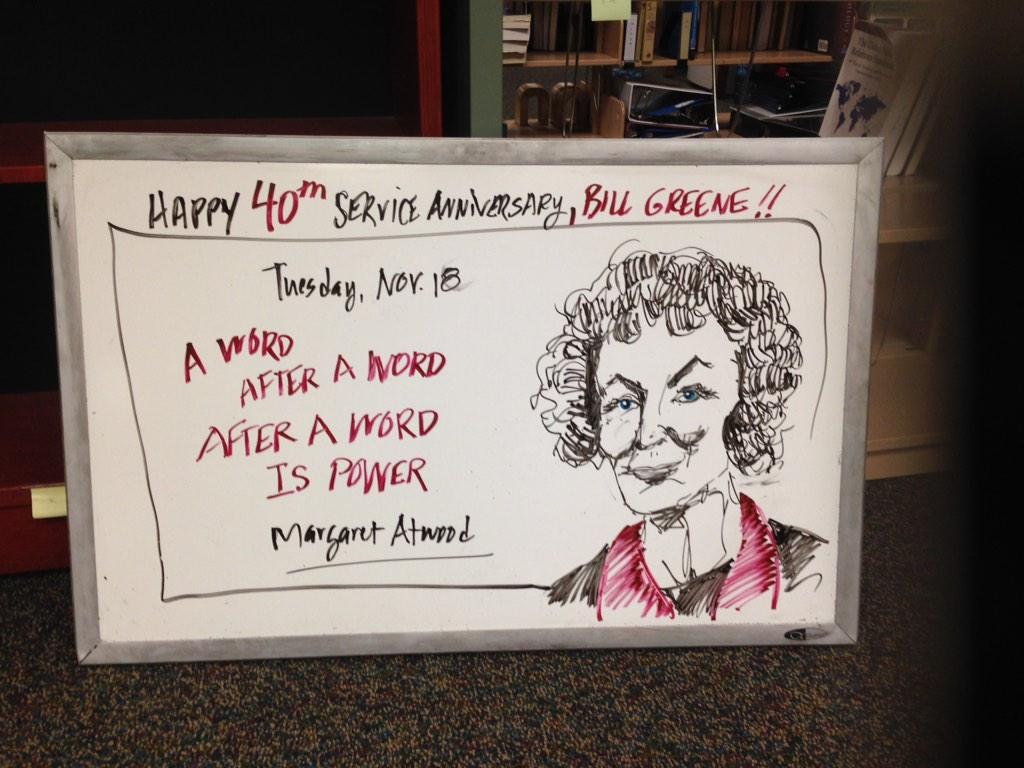 HAPPY 40th SERVICE ANNIVERSARY, BILL GREENE!!
Tuesday, Nov. 18
A WORD
AFTER A WORD
AFTER A WORD
IS POWER
Margaret Atwood